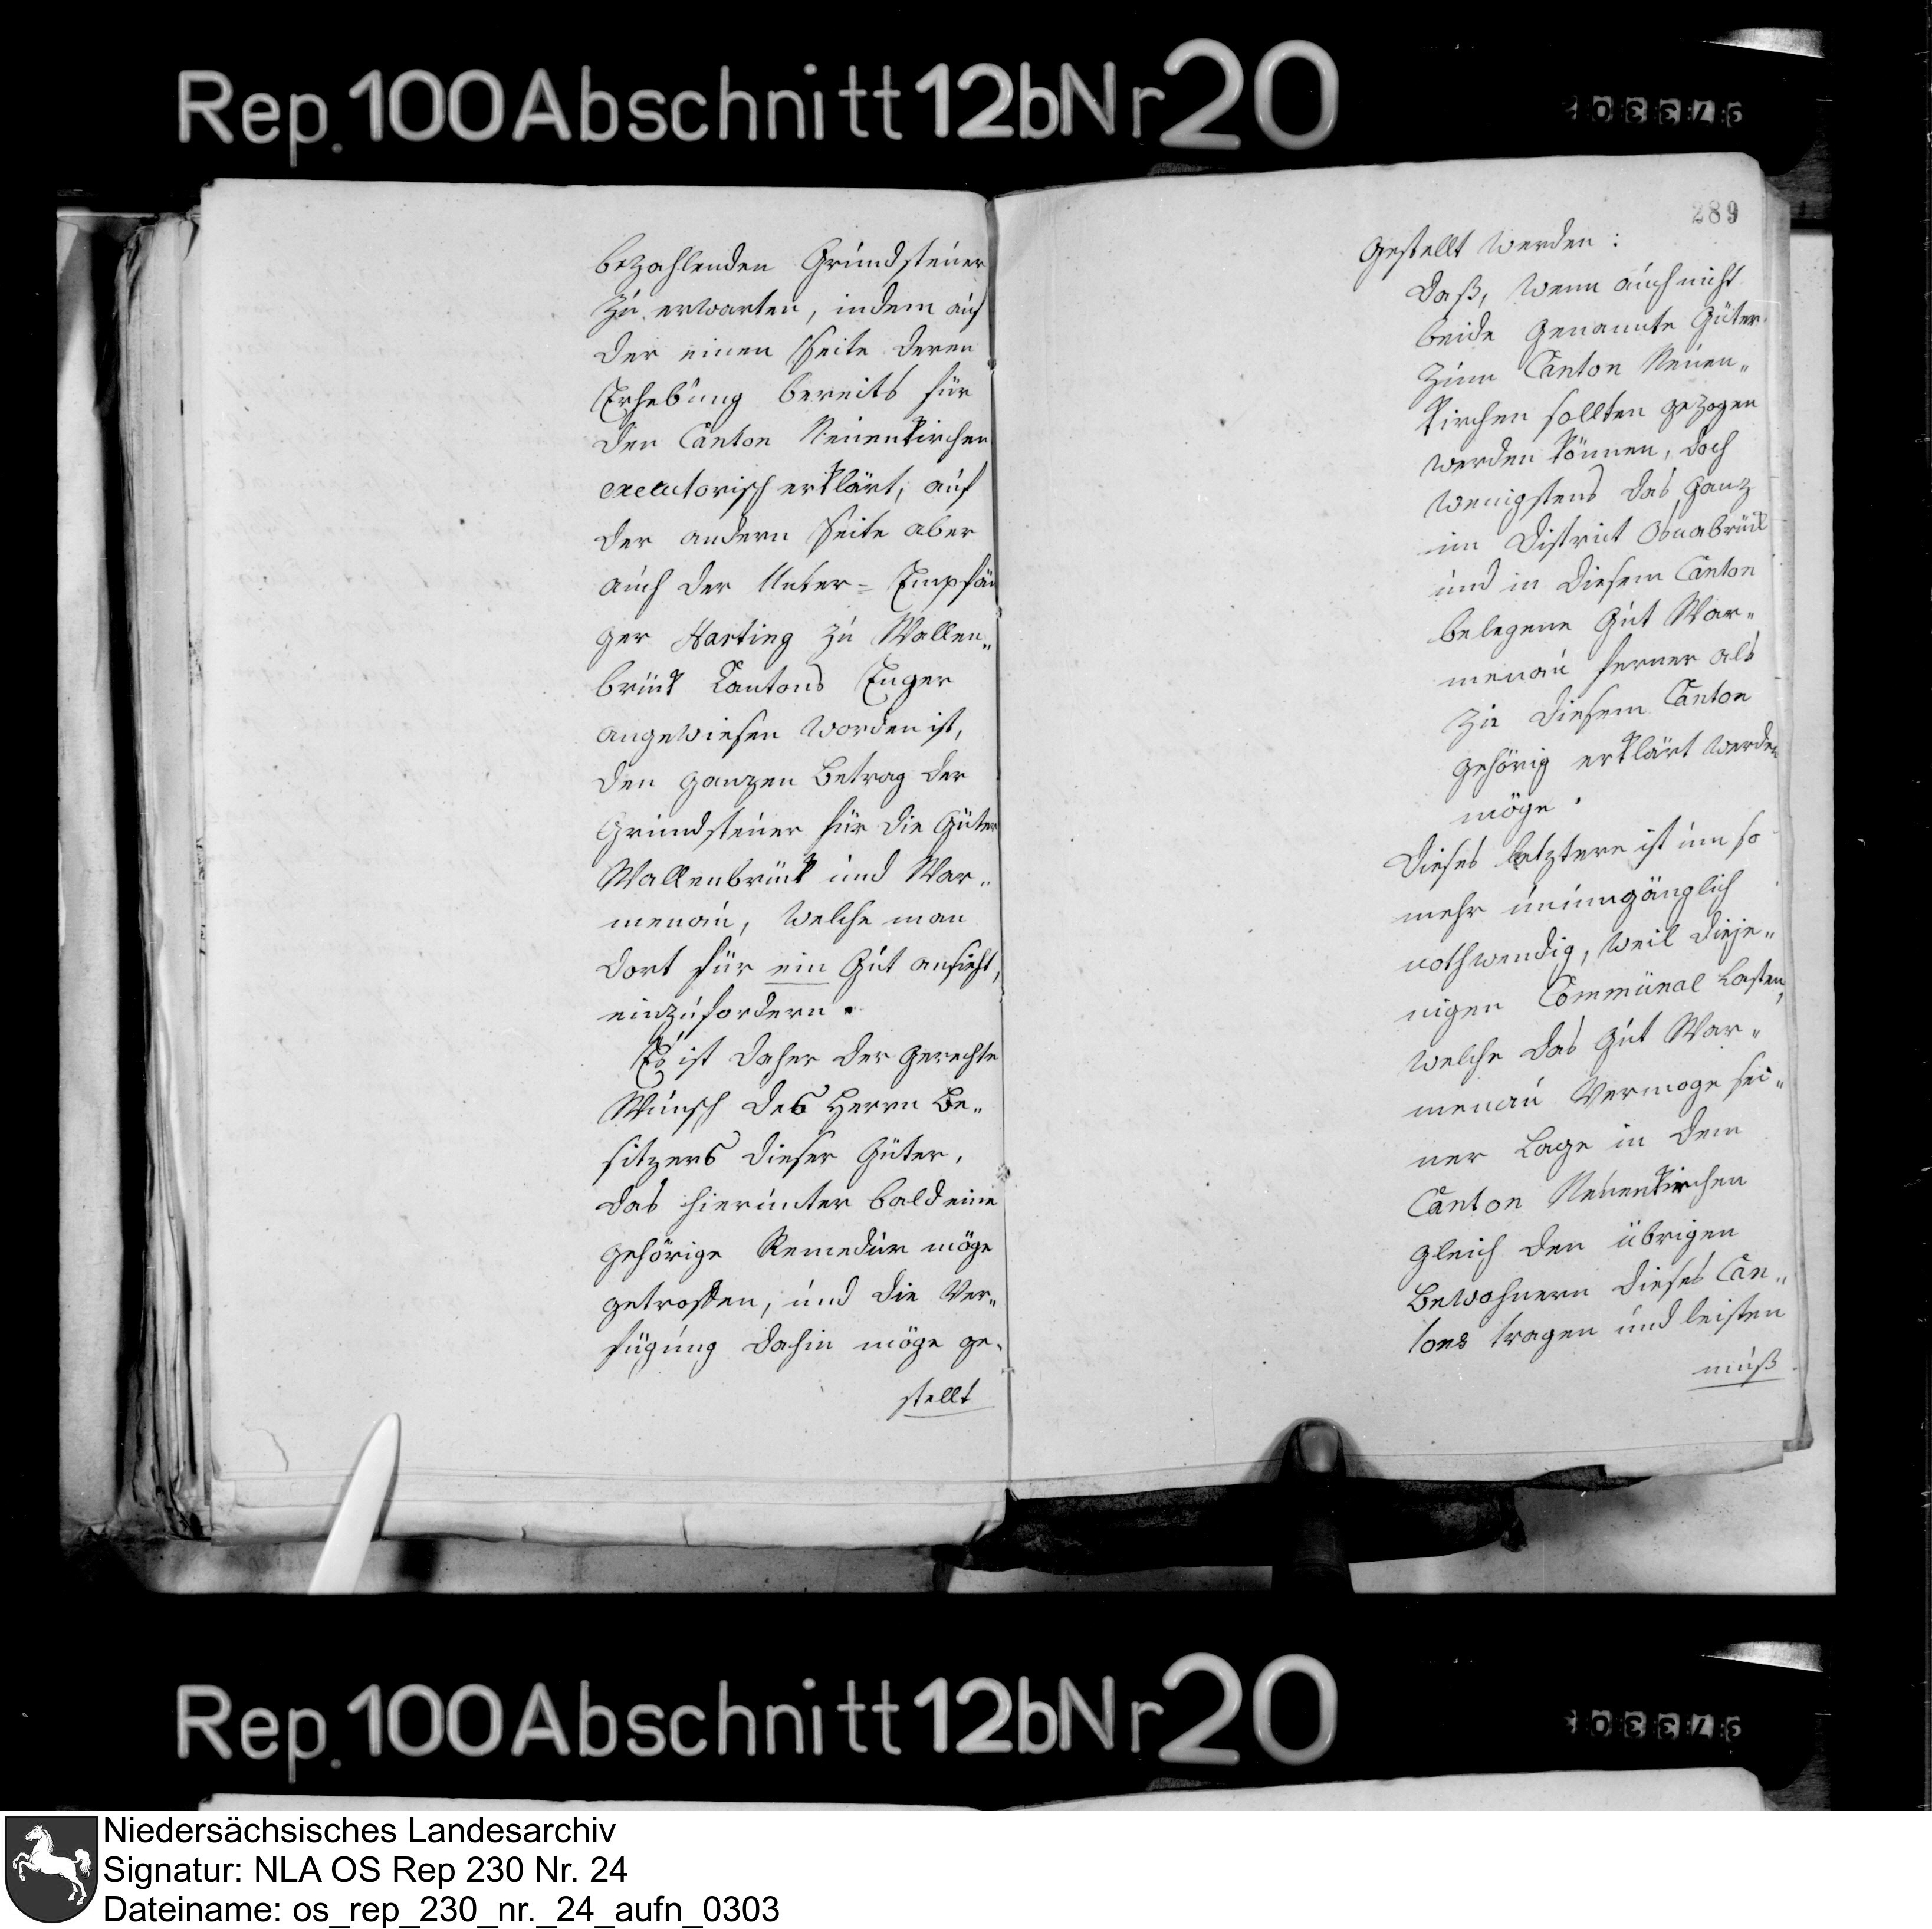 Rep. 100 Abschnitt 12b Nr 20
bezahlenden Grundsteuer
zu erwarten, indem auf
der einen Seite deren
Erhebung bereits für
den Canton Neuenkirchen
executorisch erklärt, auf
der andern Seite aber
auch der Unter= Empfän
ger Harting zu Wallen„
brück Cantons Enger
angewiesen worden ist,
den ganzen Betrag der
Grundsteuer für die Güter
Wallenbrück und War„
menau, welche man
dort für ein Gut ansieht,
einzufordern.
Es ist daher der gerechte
Wunsch des Herrn Be„
sitzers dieser Güter,
das hierunter bald eine
gehörige Remedur möge
getroffen, und die Ver„
fügung dahin möge ge„
stellt
289
gestellt werden:
daß, wenn auch nicht
beide genannte Güter
zum Canton Neuen„
kirchen sollten gezogen
werden können, doch
wenigstens das ganz
im District Osnabrück
und in diesem Canton
belegene Gut War„
menau ferner als
zu diesem Canton
gehörig erklärt werden
möge.
Dieses letztere ist um so
mehr unumgänglich
nothwendig, weil dieje„
nigen Communal Lasten,
welche das Gut War„
menau vermoge sei„
ner Lage in dem
Canton Neuenkirchen
gleich den übrigen
Bewohnern dieses Can„
tons tragen und leisten
muß
Rep. 100 Abschnitt 12b Nr 20
Niedersächsisches Landesarchiv
Signatur: NLA OS Rep 230 Nr. 24
Dateiname: os_rep_230_nr._24_aufn_0303